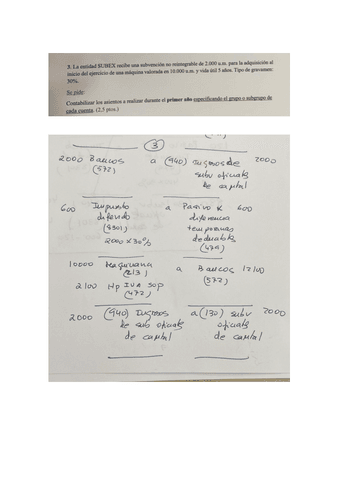 3. La entidad SUBEX recibe una subvención no reintegrable de 2.000 u.m. para la adquisición al
inicio del ejercicio de una máquina valorada en 10.000 u.m. y vida útil 5 años. Tipo de gravamen:
30%.
Se pide:
Contabilizar los asientos a realizar durante el primer año especificando el grupo o subgrupo de
cada cuenta. (2,5 ptos.)
3
2000 Bancos a (940) Ingresos de 2000
(572) subv oficiales
de capital
600 Impuesto a Pasivo x 600
diferido diferencia
(8301) temporarias
2000 x 30%
(479)
10000 Maquinaria a Bancos 12100
(213) (572)
2100 Hp IVA Sop
(472)
2000 (940) Ingresos a (130) subv 2000
de sub oficiales oficiales
de capital de capital